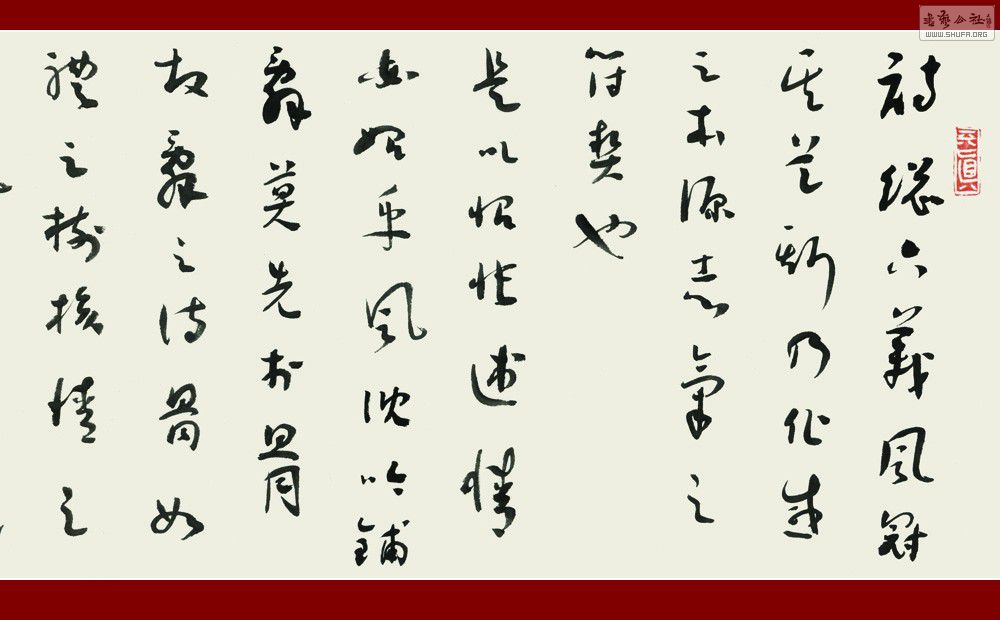 書藝公社
WWW.SHUFA.ORG
詩總六義風冠
其首斯乃化感
之本源志氣之
符契也
是以怊悵述情
必始乎風沈吟鋪
辭莫先於骨
故辭之待骨如
體之樹骸情之